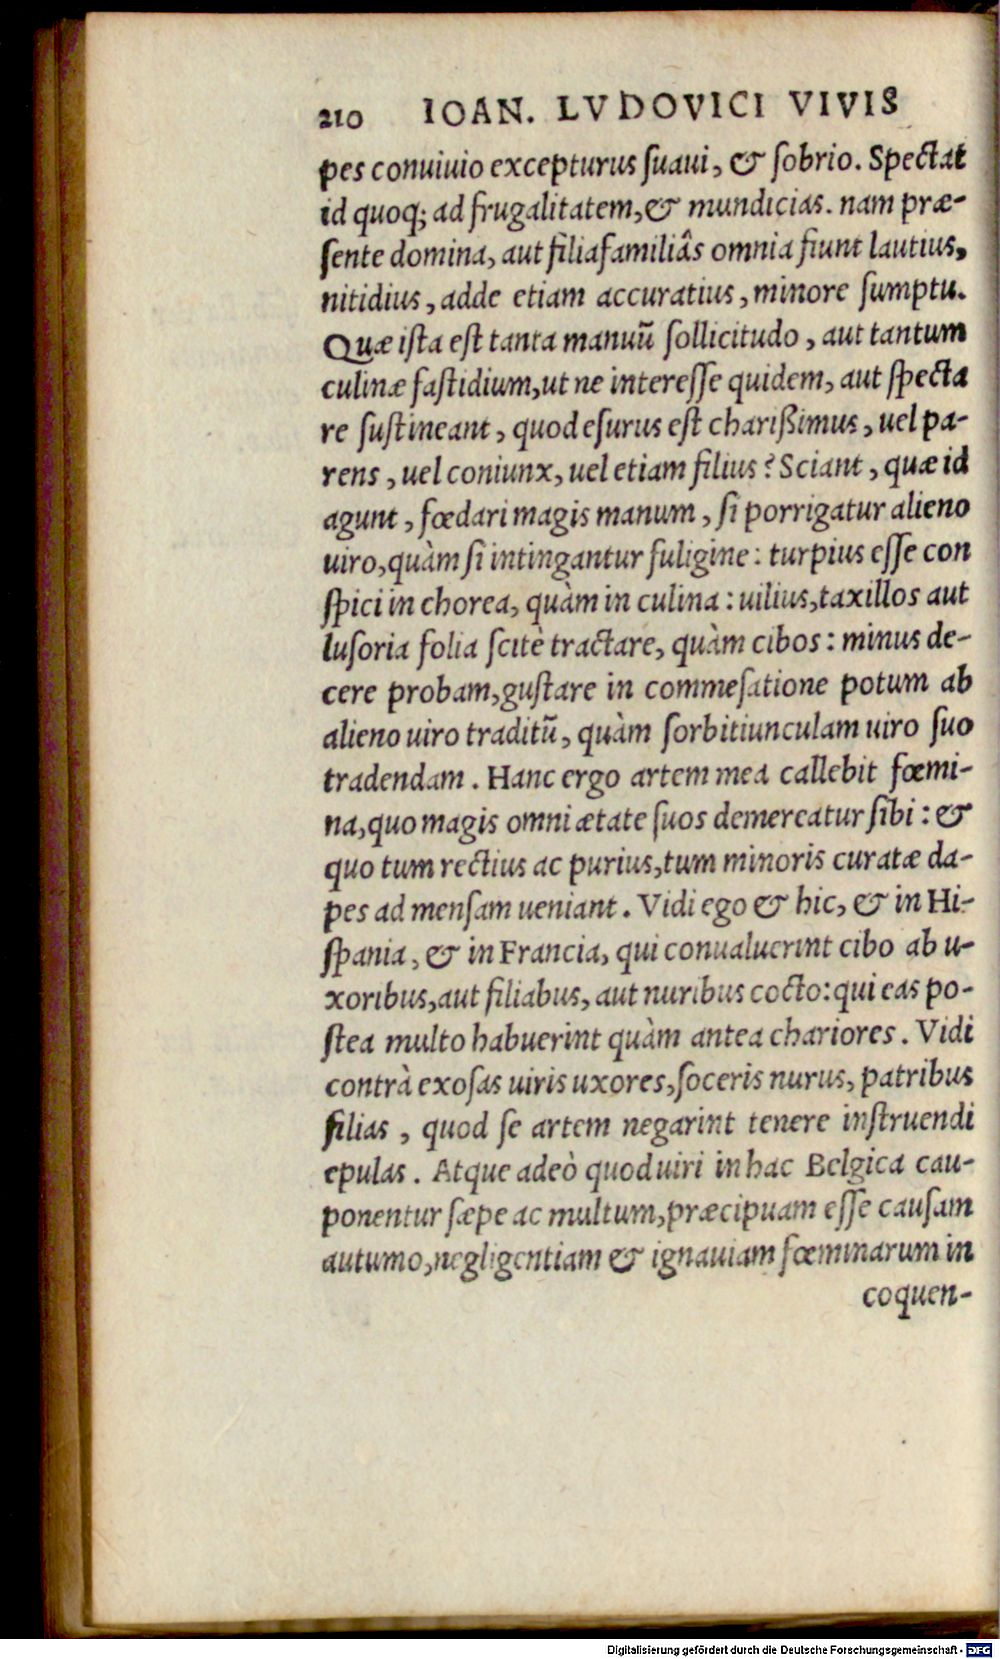 210 IOAN. LVDOVICI VIVIS
pes conuiuio excepturus ſuaui, & ſobrio. Spectat
id quoq; ad frugalitatem, & mundicias. nam præ-
ſente domina, aut filiafamiliâs omnia fiunt lautius,
nitidius, adde etiam accuratius, minore ſumptu.
Quæ iſta eſt tanta manuũ ſollicitudo, aut tantum
culinæ faſtidium, ut ne intereſſe quidem, aut ſpecta
re ſuſtineant, quod eſurus eſt charißimus, uel pa-
rens, uel coniunx, uel etiam filius? Sciant, quæ id
agunt, fœdari magis manum, ſi porrigatur alieno
uiro, quàm ſi intingantur fuligine: turpius eſſe con
ſpici in chorea, quàm in culina: uilius, taxillos aut
luſoria folia ſcitè tractare, quàm cibos: minus de-
cere probam, guſtare in commeſatione potum ab
alieno uiro traditũ, quàm ſorbitiunculam uiro ſuo
tradendam. Hanc ergo artem mea callebit fœmi-
na, quo magis omni ætate ſuos demereatur ſibi: &
quo tum rectius ac purius, tum minoris curatæ da-
pes ad menſam ueniant. Vidi ego & hic, & in Hi-
ſpania, & in Francia, qui conualuerint cibo ab u-
xoribus, aut filiabus, aut nuribus cocto: qui eas po-
ſtea multo habuerint quàm antea chariores. Vidi
contrà exoſas uiris uxores, ſoceris nurus, patribus
filias, quod ſe artem negarint tenere inſtruendi
epulas. Atque adeò quod uiri in hac Belgica cau-
ponentur ſæpe ac multum, præcipuam eſſe cauſam
autumo, negligentiam & ignauiam fœminarum in
coquen-
Digitalisierung gefördert durch die Deutsche Forschungsgemeinschaft - DFG